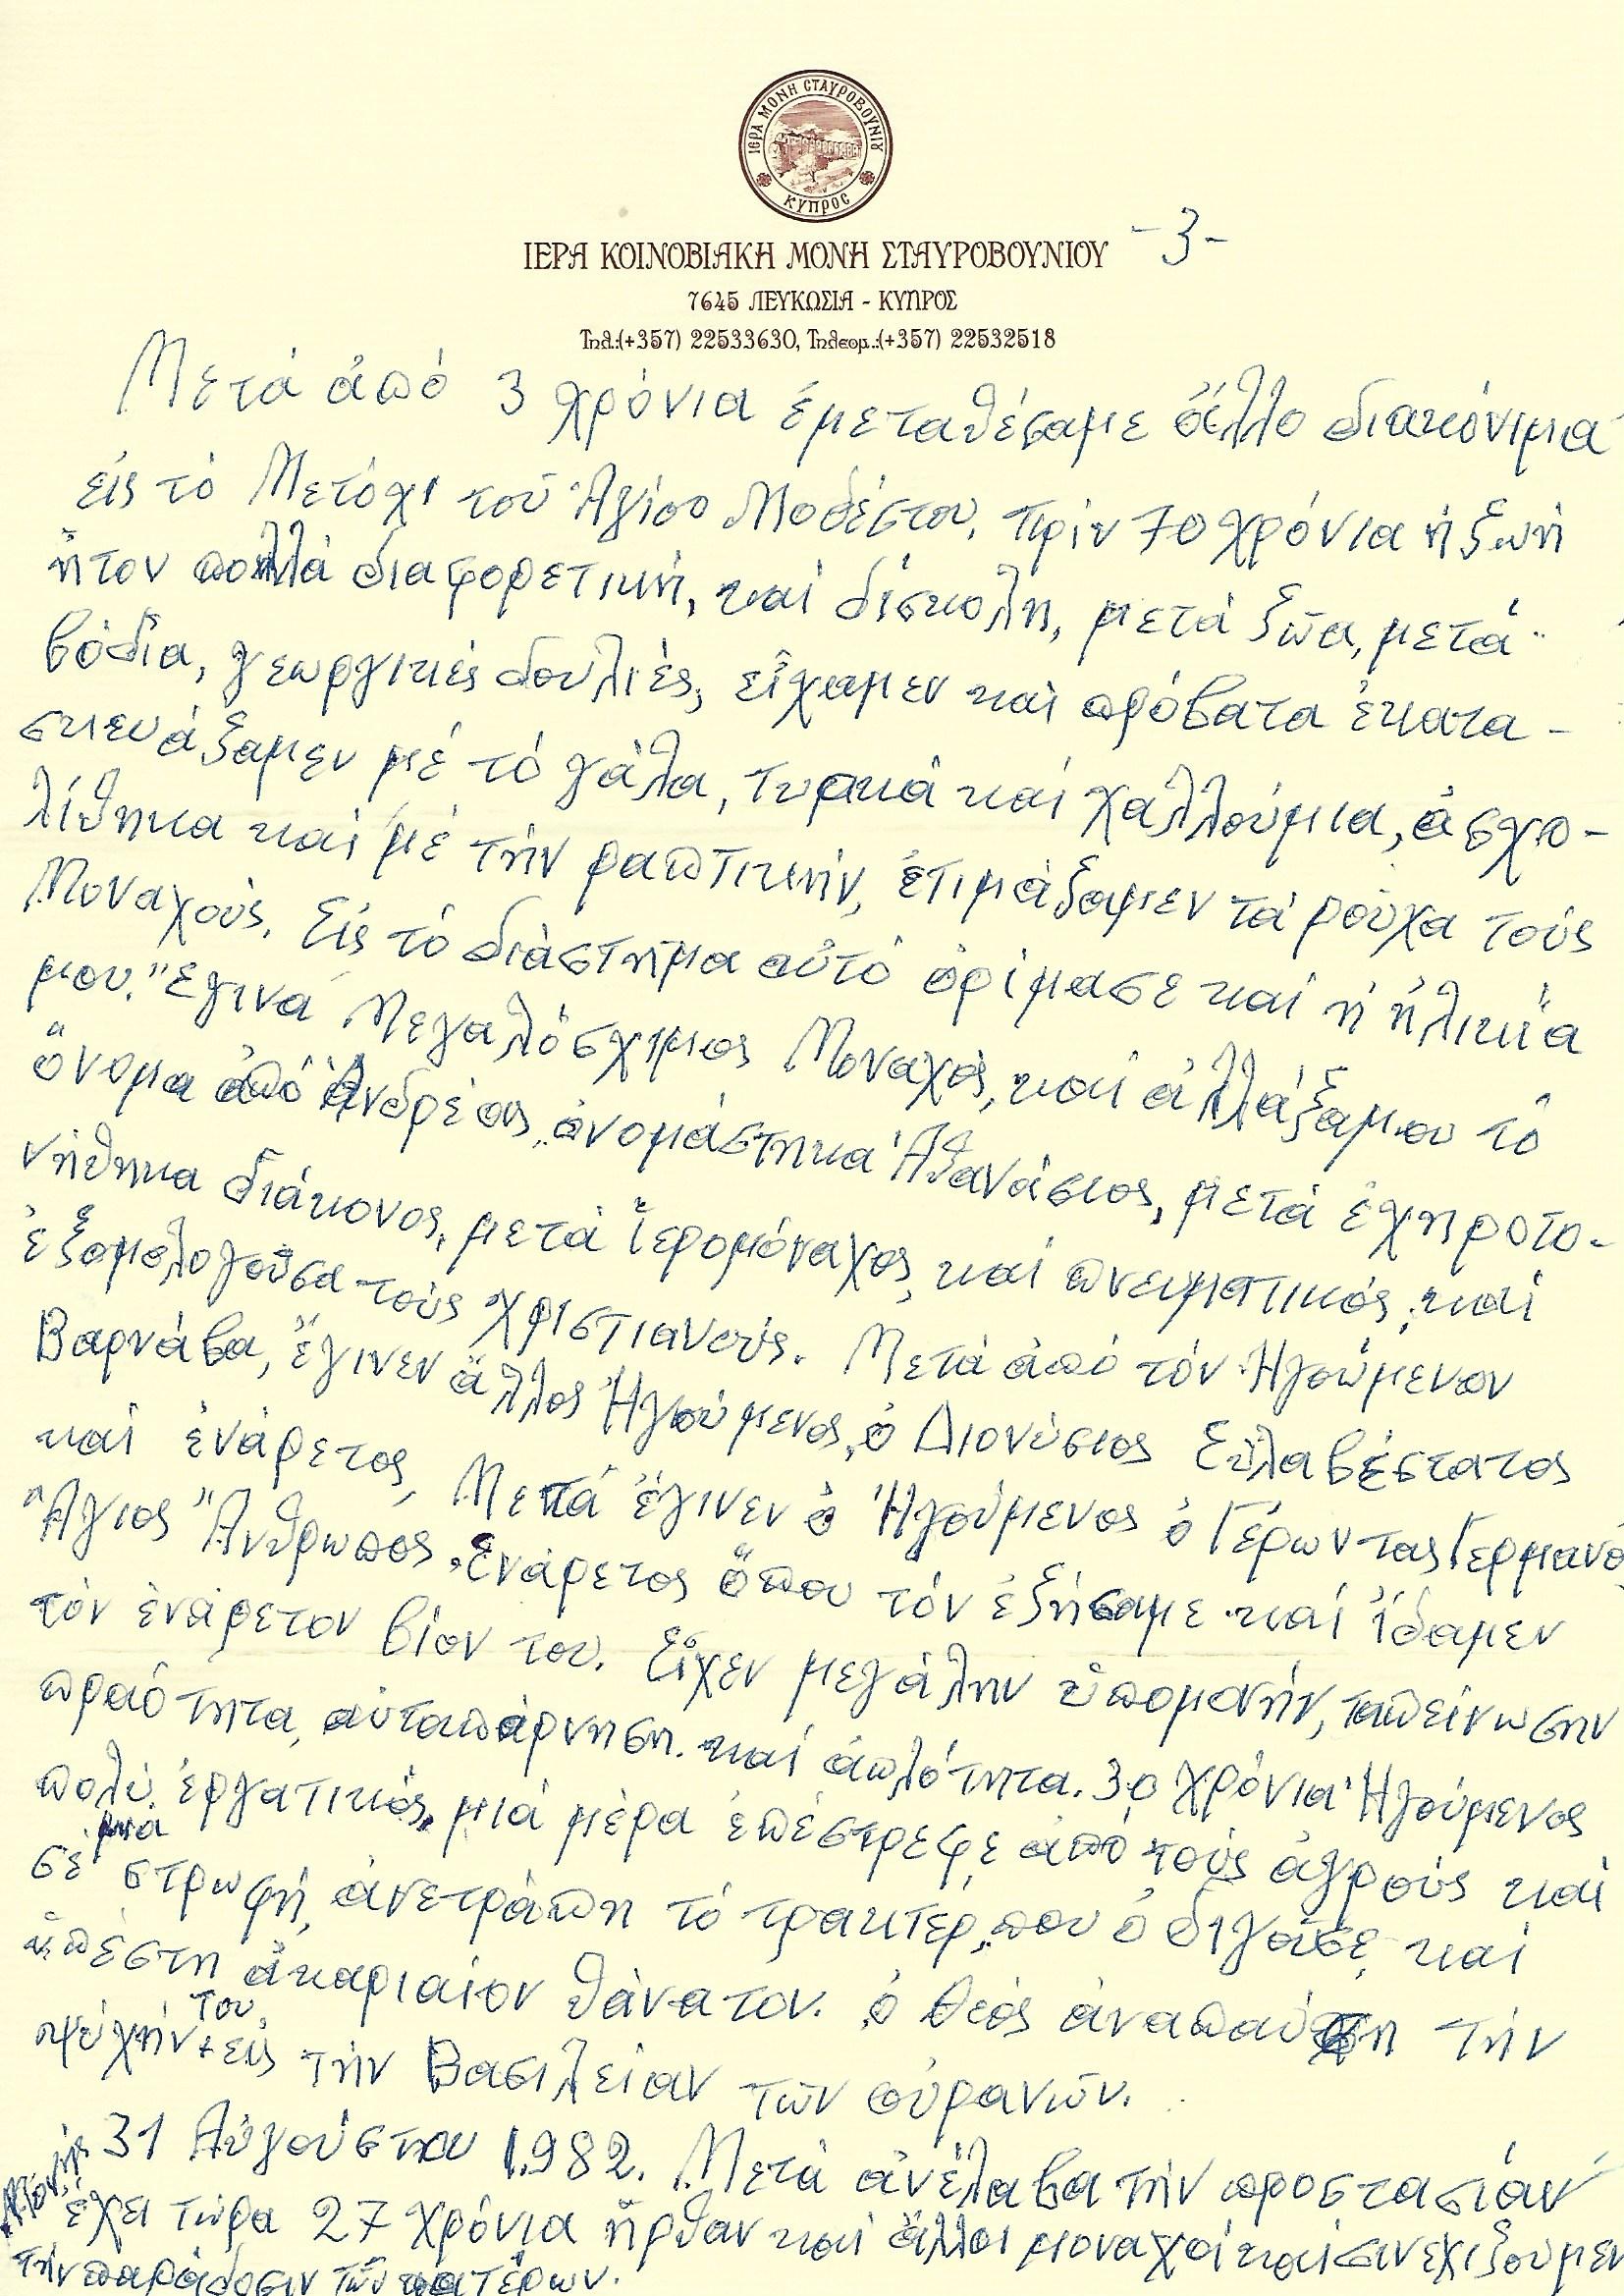 ΙΕΡΑ ΜΟΝΗ ΣΤΑΥΡΟΒΟΥΝΙΟΥ
ΚΥΠΡΟΣ
ΙΕΡΑ ΚΟΙΝΟΒΙΑΚΗ ΜΟΝΗ ΣΤΑΥΡΟΒΟΥΝΙΟΥ -3-
7645 ΛΕΥΚΩΣΙΑ - ΚΥΠΡΟΣ
Τηλ.:(+357) 22533630, Τηλεομ.:(+357) 22532518
Μετά ἀπό 3 χρόνια ἐμεταθέσαμε ἄλλο διακόνιμα
εἰς τό Μετόχι τοῦ Ἁγίου Μοδέστου, πρίν 70 χρόνια ἡ ζωή
ἤτον πολλά διαφορετική, καί δίσκολη, μετά ζῶα, μετά
βόδια, γεωργικές δουλιές, εἴχαμεν καί πρόβατα ἐκατα-
σκευάζαμεν μέ τό γάλα, τυρκά καί χαλλούμια, ἀσχο-
λίθηκα καί μέ τήν ραπτικήν, ἐτιμάζαμεν τά ροῦχα τούς
Μοναχούς. Εἰς τό διάστημα αὐτό ὁρίμασε καί ἡ ἡλικία
μου. Ἔγινα Μεγαλόσχημος Μοναχός, καί ἀλλάξαμου τό
ὄνομα ἀπό Ἀνδρέας, ὀνομάστηκα Ἀθανάσιος, μετά ἐχηροτο-
νήθηκα διάκονος, μετά Ἱερομόναχος, καί πνευματικός, καί
ἐξομολογοῦσα τούς χριστιανούς. Μετά ἀπό τόν Ἡγούμενον
Βαρνάβα, ἔγινεν ἄλλος Ἡγούμενος, ὁ Διονύσιος Εὐλαβέστατος
καί ἐνάρετος, Μετά ἔγινεν ὁ Ἡγούμενος ὁ Γέρωντας Γερμανό
Ἅγιος Ἄνθρωπος. Ἐνάρετος ὅπου τόν ἐζήσαμε καί ἴδαμεν
τόν ἐνάρετον βίον του. Εἶχεν μεγάλην ὑπομονήν, ταπείνωσην
πραότητα, αὐταπάρνηση. καί ἁπλότητα. 30 χρόνια Ἡγούμενος
πολύ ἐργατικός, μιά μέρα ἐπέστρεφε ἀπό τούς ἀγρούς καί
σέ μιά στρωφή, ἀνετράπη τό τρακτέρ, που ὁδιγοῦσε, καί
ὑπέστη ἀκαριαίον θάνατον. ὁ Θεός ἀναπαύση τήν
ψύχήν του + εἰς τήν Βασιλείαν τῶν οὐρανῶν.
31 Αὐγούστου 1982. Μετά ἀνέλαβα τήν προστασίαν
ἔχει τώρα 27 χρόνια ἤρθαν καί ἄλλοι μοναχοί καί συνεχίζουμεν
τήν παράδοσιν τῶν πατέρων.